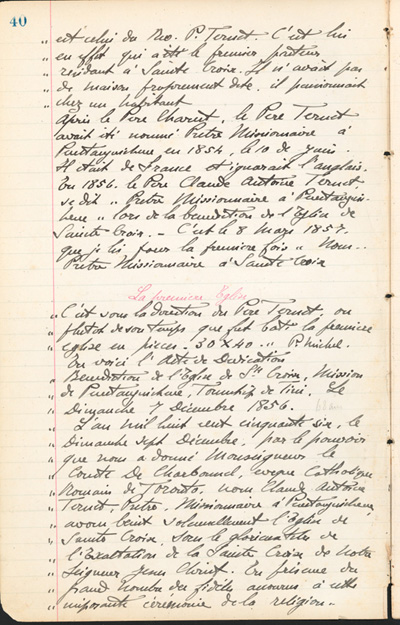 40
" est celui du Rev. P. Ternet. C'est lui
" en effet qui a été le premier pasteur
" résidant à Sainte Croix. Il n'avait pas
" de maison proprement dite, il pensionnait
" chez un habitant
Après le Père Charest, le Père Ternet
avait été nommé Prêtre Missionnaire à
Penetanguishene en 1854, le 10 de juin.
Il était de France et ignorait l'anglais.
En 1856, le Père Claude Antoine Ternet
se dit " Prêtre Missionnaire à Penetanguis-
hene " lors de la bénédiction de l'Eglise de
Sainte Croix. - C'est le 8 Mars 1857.
que je lis pour la première fois " Nous..
Prêtre Missionnaire à Sainte Croix
La première Eglise
" C'est sous la direction du Père Ternet, ou
" plutôt de son temps que fut bâti la première
" église en pièces - 30 x 40 .. " P. Michel.
En voici l'Acte de Dédication
" Bénédiction de l'Eglise de Ste Croix, Mission
" de Penetanguishene, Township de Tiny. Le
" Dimanche 7 Décembre 1856.
" L'an mil huit cent cinquante six, le
" dimanche sept Décembre, par le pouvoir
" que nous a donné Monseigneur le
" Comte De Charbonnel, évêque Catholique
" Romain de Toronto, nous Claude Antoine
" Ternet, Prêtre, Missionnaire à Penetanguishene
" avons béni solennellement l'Eglise de
" Sainte Croix, sous le glorieux titre de
" l'Exaltation de la Sainte Croix de Notre
" Seigneur Jésus Christ. En présence du
" grand nombre des fidèles accourus à cette
" imposante cérémonie de la religion.-